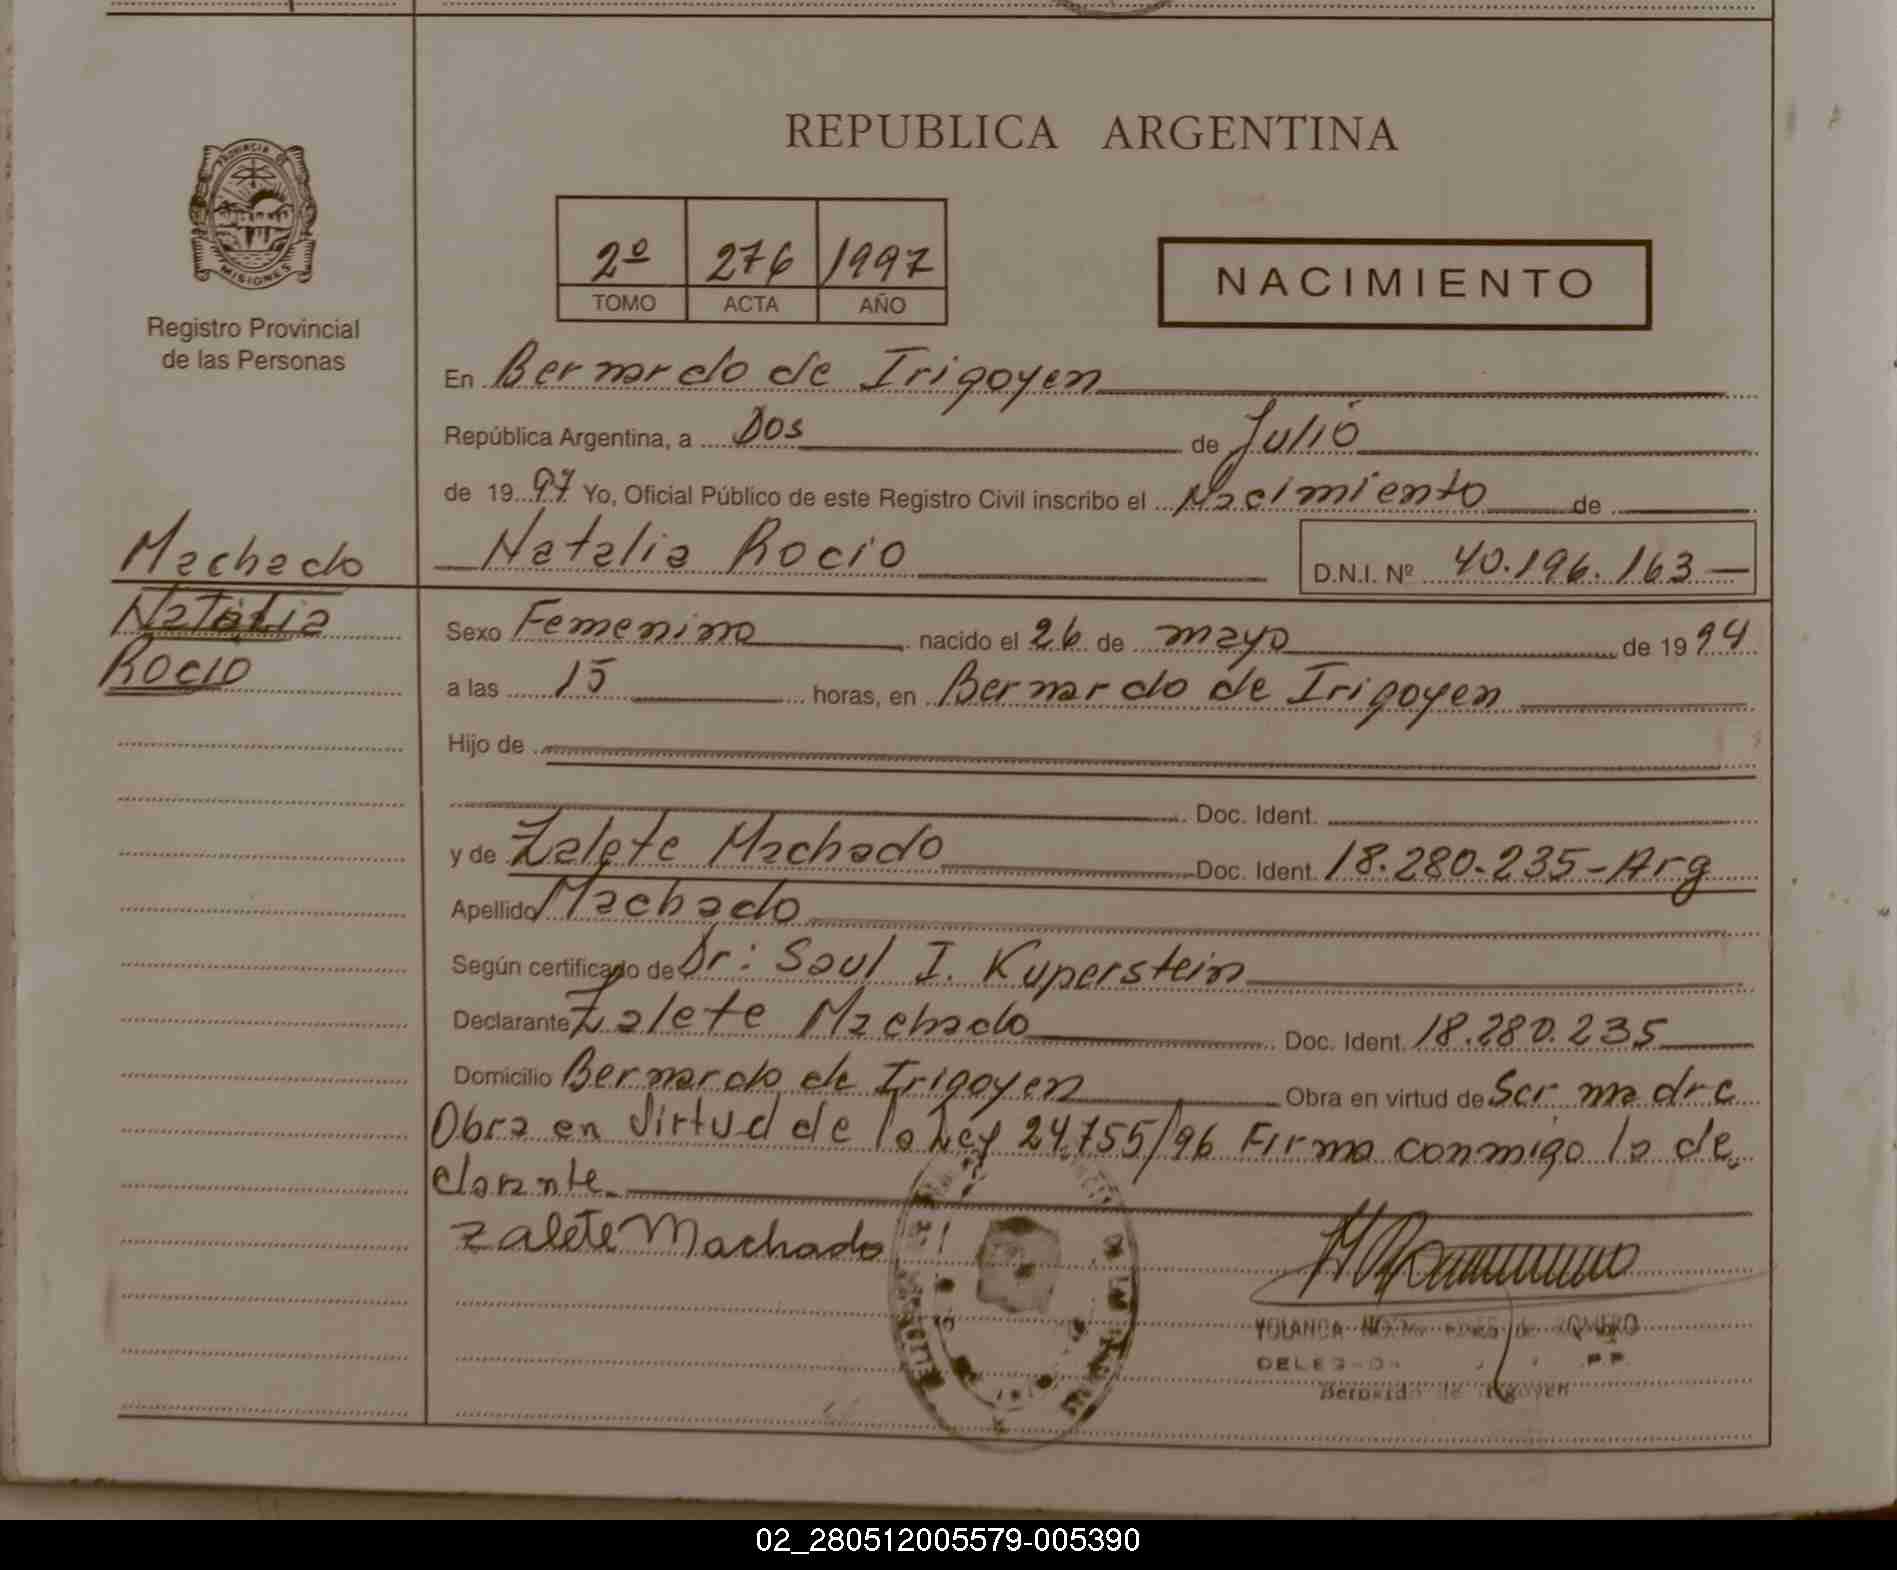 REPUBLICA ARGENTINA
PROVINCIA DE
MISIONES
Registro Provincial
de las Personas
2º 276 1997
TOMO ACTA AÑO
NACIMIENTO
En Bernardo de Irigoyen
República Argentina, a Dos de Julio
de 1997 Yo, Oficial Público de este Registro Civil inscribo el Nacimiento de
Natalia Rocio D.N.I. Nº 40.196.163
Machado
Natalia
Rocio
Sexo Femenino nacido el 26 de mayo de 1994
a las 15 horas, en Bernardo de Irigoyen
Hijo de
Doc. Ident.
y de Zalete Machado Doc. Ident. 18.280.235-Arg
Apellido Machado
Según certificado de Dr: Saul I. Kuperstein
Declarante Zalete Machado Doc. Ident. 18.280.235
Domicilio Bernardo de Irigoyen Obra en virtud de Ser madre
Obra en Virtud de la Ley 24.755/96 Firma conmigo la de
clarante.
Zalete Machado
YOLANDA de ROMERO
Bernardo de Irigoyen
02_280512005579-005390